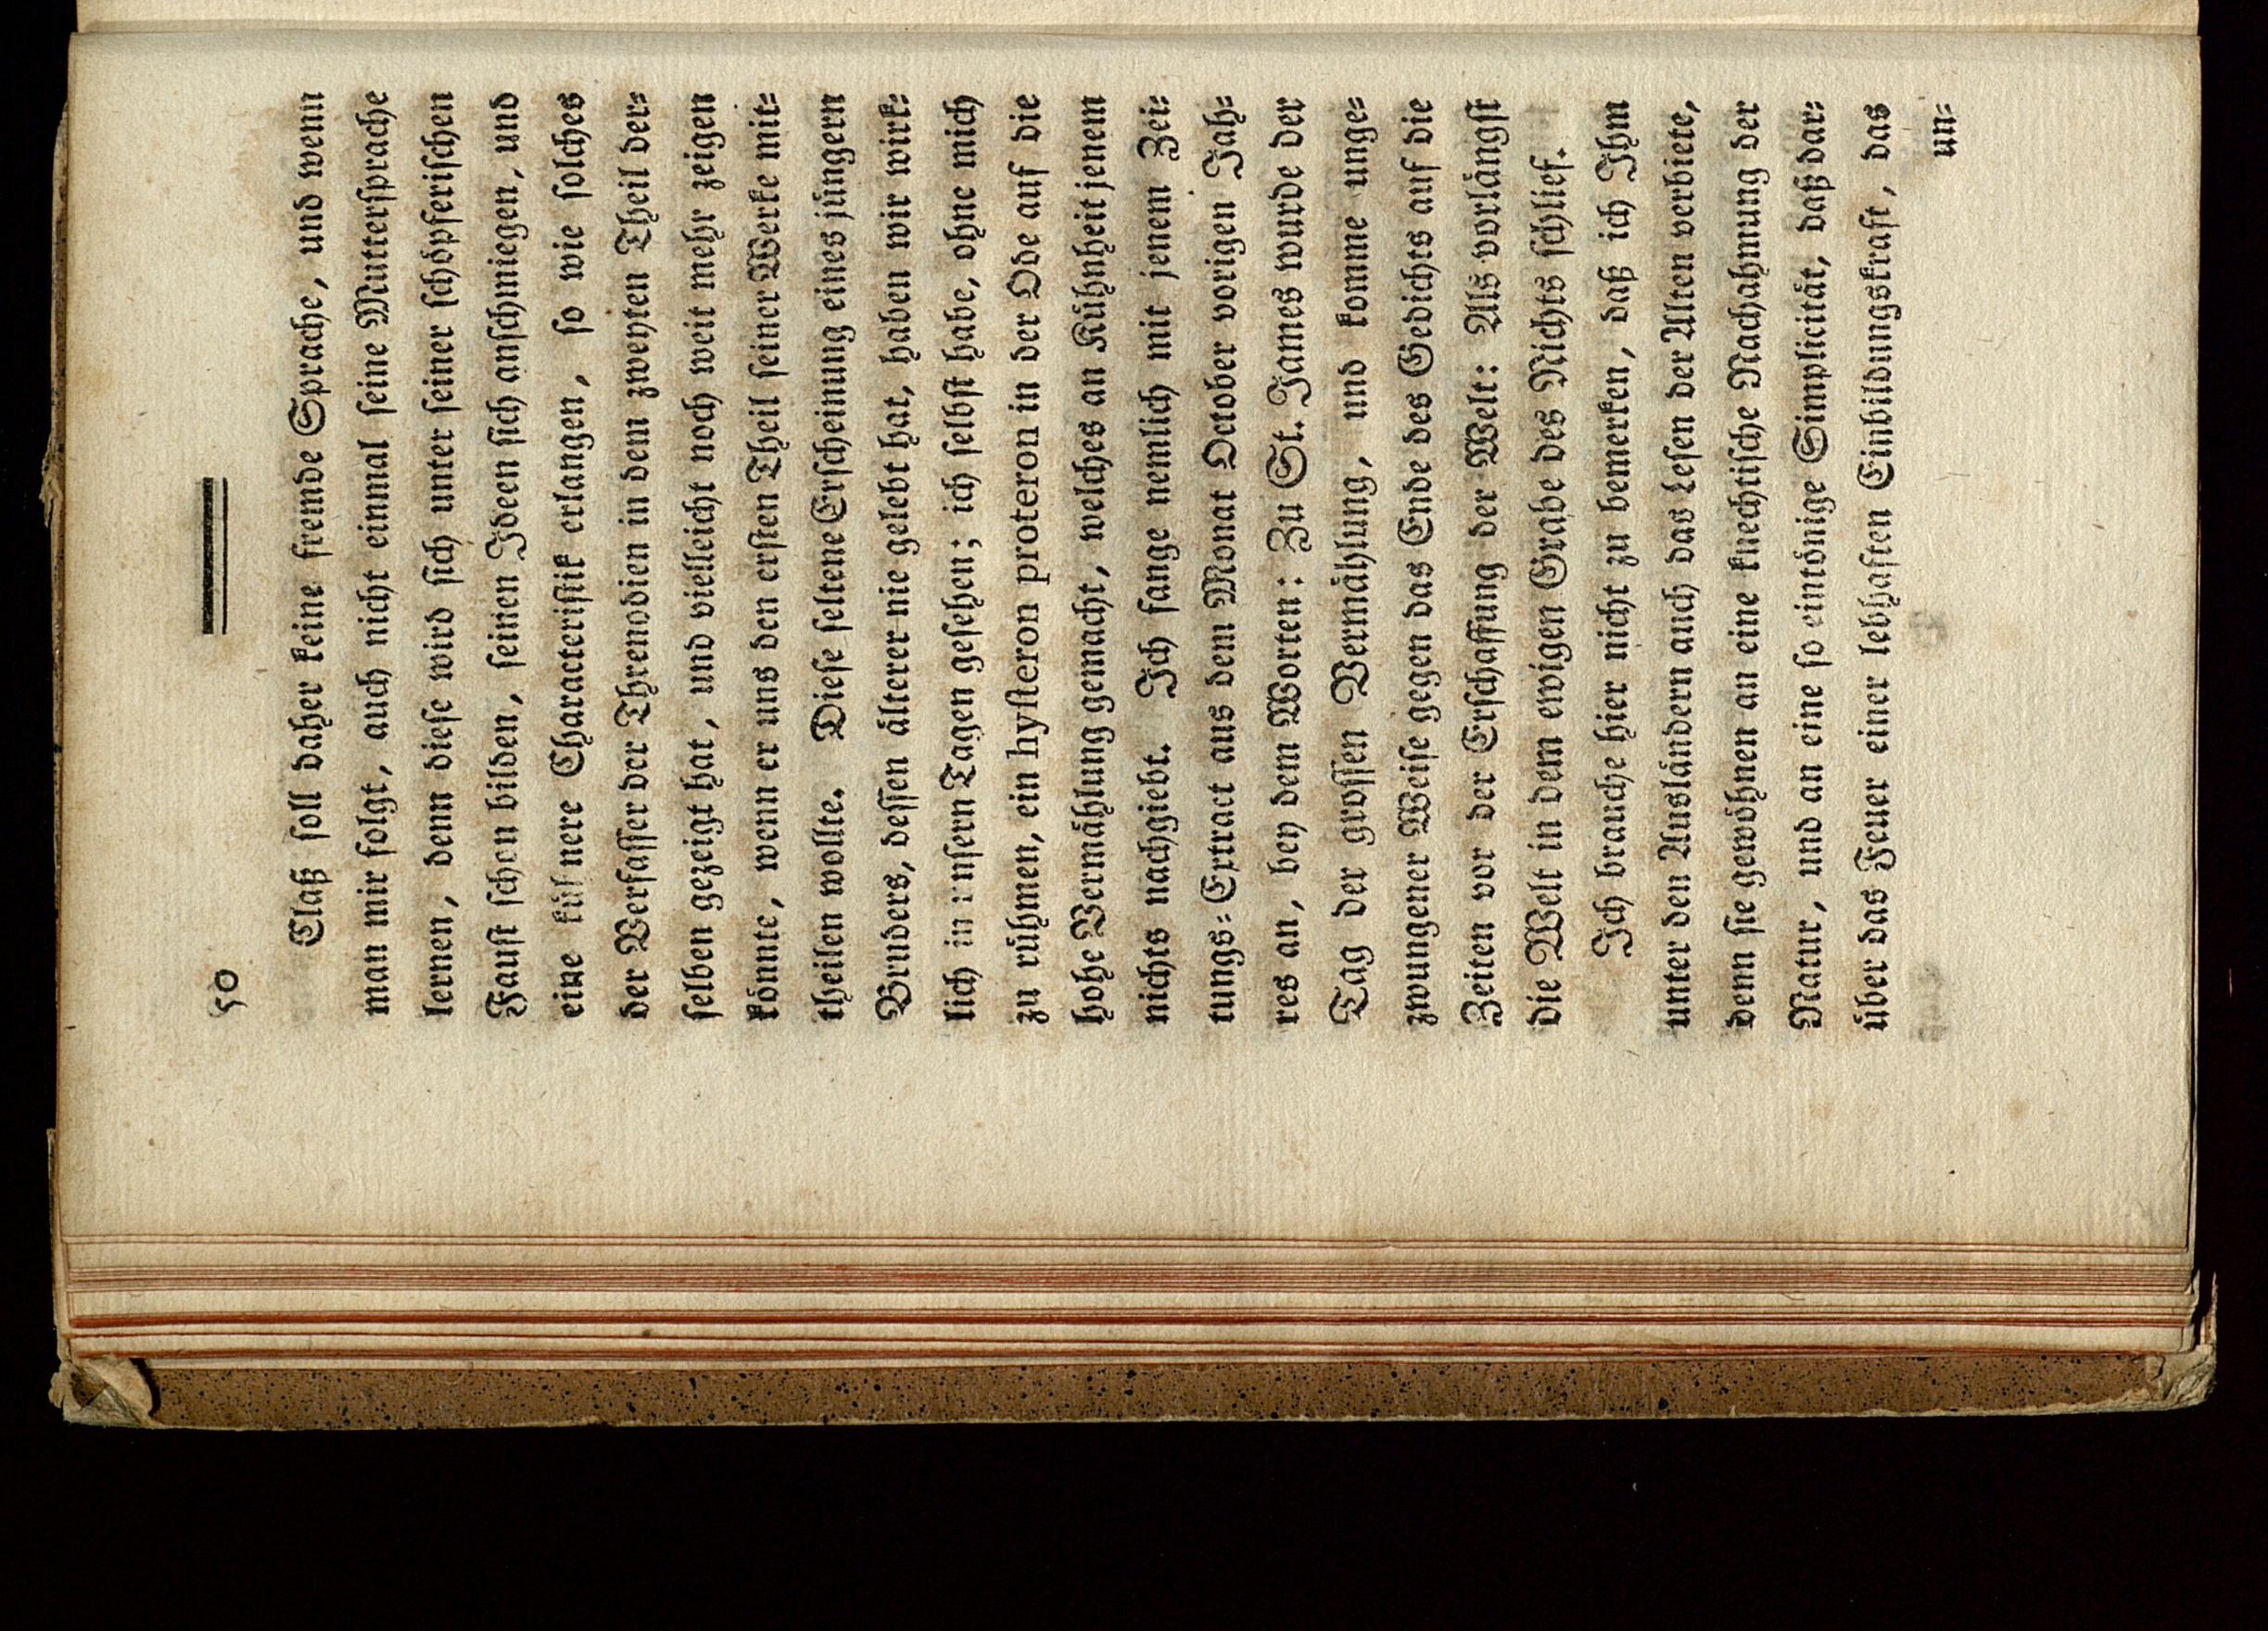 50
Claß ſoll daher keine fremde Sprache, und wenn
man mir folgt, auch nicht einmal ſeine Mutterſprache
lernen, denn dieſe wird ſich unter ſeiner ſchöpferiſchen
Fauſt ſchon bilden, ſeinen Ideen ſich anſchmiegen, und
eine kühnere Characteriſtik erlangen, ſo wie ſolches
der Verfaſſer der Threnodien in dem zweyten Theil der⸗
ſelben gezeigt hat, und vielleicht noch weit mehr zeigen
könnte, wenn er uns den erſten Theil ſeiner Werke mit⸗
theilen wollte. Dieſe ſeltene Erſcheinung eines jüngern
Bruders, deſſen älterer nie gelebt hat, haben wir wirk⸗
lich in unſern Tagen geſehen; ich ſelbſt habe, ohne mich
zu rühmen, ein hyſteron proteron in der Ode auf die
hohe Vermählung gemacht, welches an Kühnheit jenem
nichts nachgiebt. Ich fange nemlich mit jenem Zei⸗
tungs⸗Extract aus dem Monat October vorigen Jah⸗
res an, bey dem Worten: Zu St. James wurde der
Tag der groſſen Vermählung, und komme unge⸗
zwungener Weiſe gegen das Ende des Gedichts auf die
Zeiten vor der Erſchaffung der Welt: Als vorlängſt
die Welt in dem ewigen Grabe des Nichts ſchlief.
Ich brauche hier nicht zu bemerken, daß ich Ihm
unter den Ausländern auch das Leſen der Alten verbiete,
denn ſie gewöhnen an eine knechtiſche Nachahmung der
Natur, und an eine ſo eintönige Simplicität, daß dar⸗
über das Feuer einer lebhaften Einbildungskraft, das
un⸗